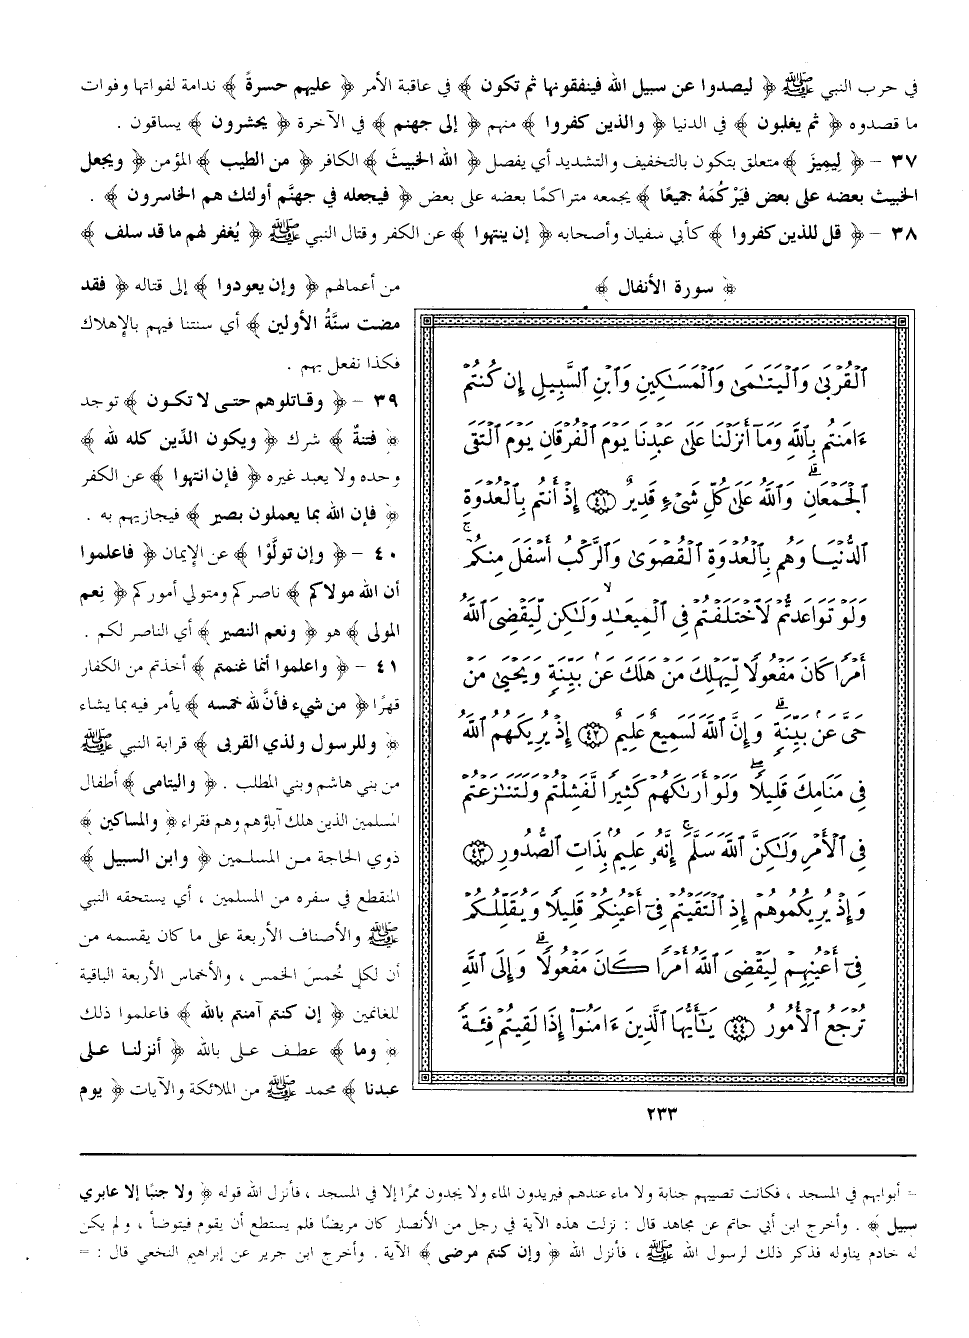 في حرب النبي ﷺ ﴿ ليصدوا عن سبيل الله فينفقونها ثم تكون ﴾ في عاقبة الأمر ﴿ عليهم حسرةً ﴾ ندامة لفواتها وفوات
ما قصدوه ﴿ ثم يغلبون ﴾ في الدنيا ﴿ والذين كفروا ﴾ منهم ﴿ إلى جهنم ﴾ في الآخرة ﴿ يحشرون ﴾ يساقون .
٣٧ – ﴿ لِيميزَ ﴾ متعلق بتكون بالتخفيف والتشديد أي يفصل ﴿ الله الخبيثَ ﴾ الكافر ﴿ من الطيب ﴾ المؤمن ﴿ ويجعل
الخبيث بعضه على بعض فَيَرْكُمَهُ جميعًا ﴾ يجمعه متراكمًا بعضه على بعض ﴿ فيجعله في جهنَّم أولئك هم الخاسرون ﴾ .
٣٨ – ﴿ قل للذين كفروا ﴾ كأبي سفيان وأصحابه ﴿ إن ينتهوا ﴾ عن الكفر وقتال النبي ﷺ ﴿ يُغفر لهم ما قد سلف ﴾
﴿ سورة الأنفال ﴾
ٱلْقُرْبَىٰ وَٱلْيَتَـٰمَىٰ وَٱلْمَسَـٰكِينِ وَٱبْنِ ٱلسَّبِيلِ إِن كُنتُمْ
ءَامَنتُم بِٱللَّهِ وَمَآ أَنزَلْنَا عَلَىٰ عَبْدِنَا يَوْمَ ٱلْفُرْقَانِ يَوْمَ ٱلْتَقَى
ٱلْجَمْعَانِ ۗ وَٱللَّهُ عَلَىٰ كُلِّ شَىْءٍ قَدِيرٌ ﴿٤١﴾ إِذْ أَنتُم بِٱلْعُدْوَةِ
ٱلدُّنْيَا وَهُم بِٱلْعُدْوَةِ ٱلْقُصْوَىٰ وَٱلرَّكْبُ أَسْفَلَ مِنكُمْ ۚ
وَلَوْ تَوَاعَدتُّمْ لَٱخْتَلَفْتُمْ فِى ٱلْمِيعَـٰدِ ۙ وَلَـٰكِن لِّيَقْضِىَ ٱللَّهُ
أَمْرًا كَانَ مَفْعُولًا لِّيَهْلِكَ مَنْ هَلَكَ عَنۢ بَيِّنَةٍ وَيَحْيَىٰ مَنْ
حَىَّ عَنۢ بَيِّنَةٍ ۗ وَإِنَّ ٱللَّهَ لَسَمِيعٌ عَلِيمٌ ﴿٤٢﴾ إِذْ يُرِيكَهُمُ ٱللَّهُ
فِى مَنَامِكَ قَلِيلًا ۖ وَلَوْ أَرَىٰكَهُمْ كَثِيرًا لَّفَشِلْتُمْ وَلَتَنَـٰزَعْتُمْ
فِى ٱلْأَمْرِ وَلَـٰكِنَّ ٱللَّهَ سَلَّمَ ۗ إِنَّهُۥ عَلِيمٌۢ بِذَاتِ ٱلصُّدُورِ ﴿٤٣﴾
وَإِذْ يُرِيكُمُوهُمْ إِذِ ٱلْتَقَيْتُمْ فِىٓ أَعْيُنِكُمْ قَلِيلًا وَيُقَلِّلُكُمْ
فِىٓ أَعْيُنِهِمْ لِيَقْضِىَ ٱللَّهُ أَمْرًا كَانَ مَفْعُولًا ۗ وَإِلَى ٱللَّهِ
تُرْجَعُ ٱلْأُمُورُ ﴿٤٤﴾ يَـٰٓأَيُّهَا ٱلَّذِينَ ءَامَنُوٓا۟ إِذَا لَقِيتُمْ فِئَةً
٢٣٣
من أعمالهم ﴿ وإن يعودوا ﴾ إلى قتاله ﴿ فقد
مضت سنَّةُ الأولين ﴾ أي سنتنا فيهم بالإهلاك
فكذا نفعل بهم .
٣٩ – ﴿ وقاتلوهم حتى لا تكون ﴾ توجد
﴿ فتنةٌ ﴾ شرك ﴿ ويكون الدِّين كله لله ﴾
وحده ولا يعبد غيره ﴿ فإن انتهوا ﴾ عن الكفر
﴿ فإن الله بما يعملون بصير ﴾ فيجازيهم به .
٤٠ – ﴿ وإن تولَّوْا ﴾ عن الإيمان ﴿ فاعلموا
أن الله مولاكم ﴾ ناصركم ومتولي أموركم ﴿ نِعم
المولى ﴾ هو ﴿ ونعم النصير ﴾ أي الناصر لكم .
٤١ – ﴿ واعلموا أنما غنمتم ﴾ أخذتم من الكفار
قهرًا ﴿ من شيء فأنَّ لله خمسه ﴾ يأمر فيه بما يشاء
﴿ وللرسول ولذي القربى ﴾ قرابة النبي ﷺ
من بني هاشم وبني المطلب . ﴿ واليتامى ﴾ أطفال
المسلمين الذين هلك آباؤهم وهم فقراء ﴿ والمساكين ﴾
ذوي الحاجة من المسلمين ﴿ وابن السبيل ﴾
المنقطع في سفره من المسلمين ، أي يستحقه النبي
ﷺ والأصناف الأربعة على ما كان يقسمه من
أن لكل خُمسَ الخمس ، والأخماس الأربعة الباقية
للغانمين ﴿ إن كنتم آمنتم بالله ﴾ فاعلموا ذلك
﴿ وما ﴾ عطف على بالله ﴿ أنزلنا على
عبدنا ﴾ محمد ﷺ من الملائكة والآيات ﴿ يوم
= أبوابهم في المسجد ، فكانت تصيبهم جنابة ولا ماء عندهم فيريدون الماء ولا يجدون ممرًا إلا في المسجد ، فأنزل الله قوله ﴿ ولا جنبًا إلا عابري
سبيل ﴾ . وأخرج ابن أبي حاتم عن مجاهد قال : نزلت هذه الآية في رجل من الأنصار كان مريضًا فلم يستطع أن يقوم فيتوضأ ، ولم يكن
له خادم يناوله فذكر ذلك لرسول الله ﷺ ، فأنزل الله ﴿ وإن كنتم مرضى ﴾ الآية . وأخرج ابن جرير عن إبراهيم النخعي قال : =